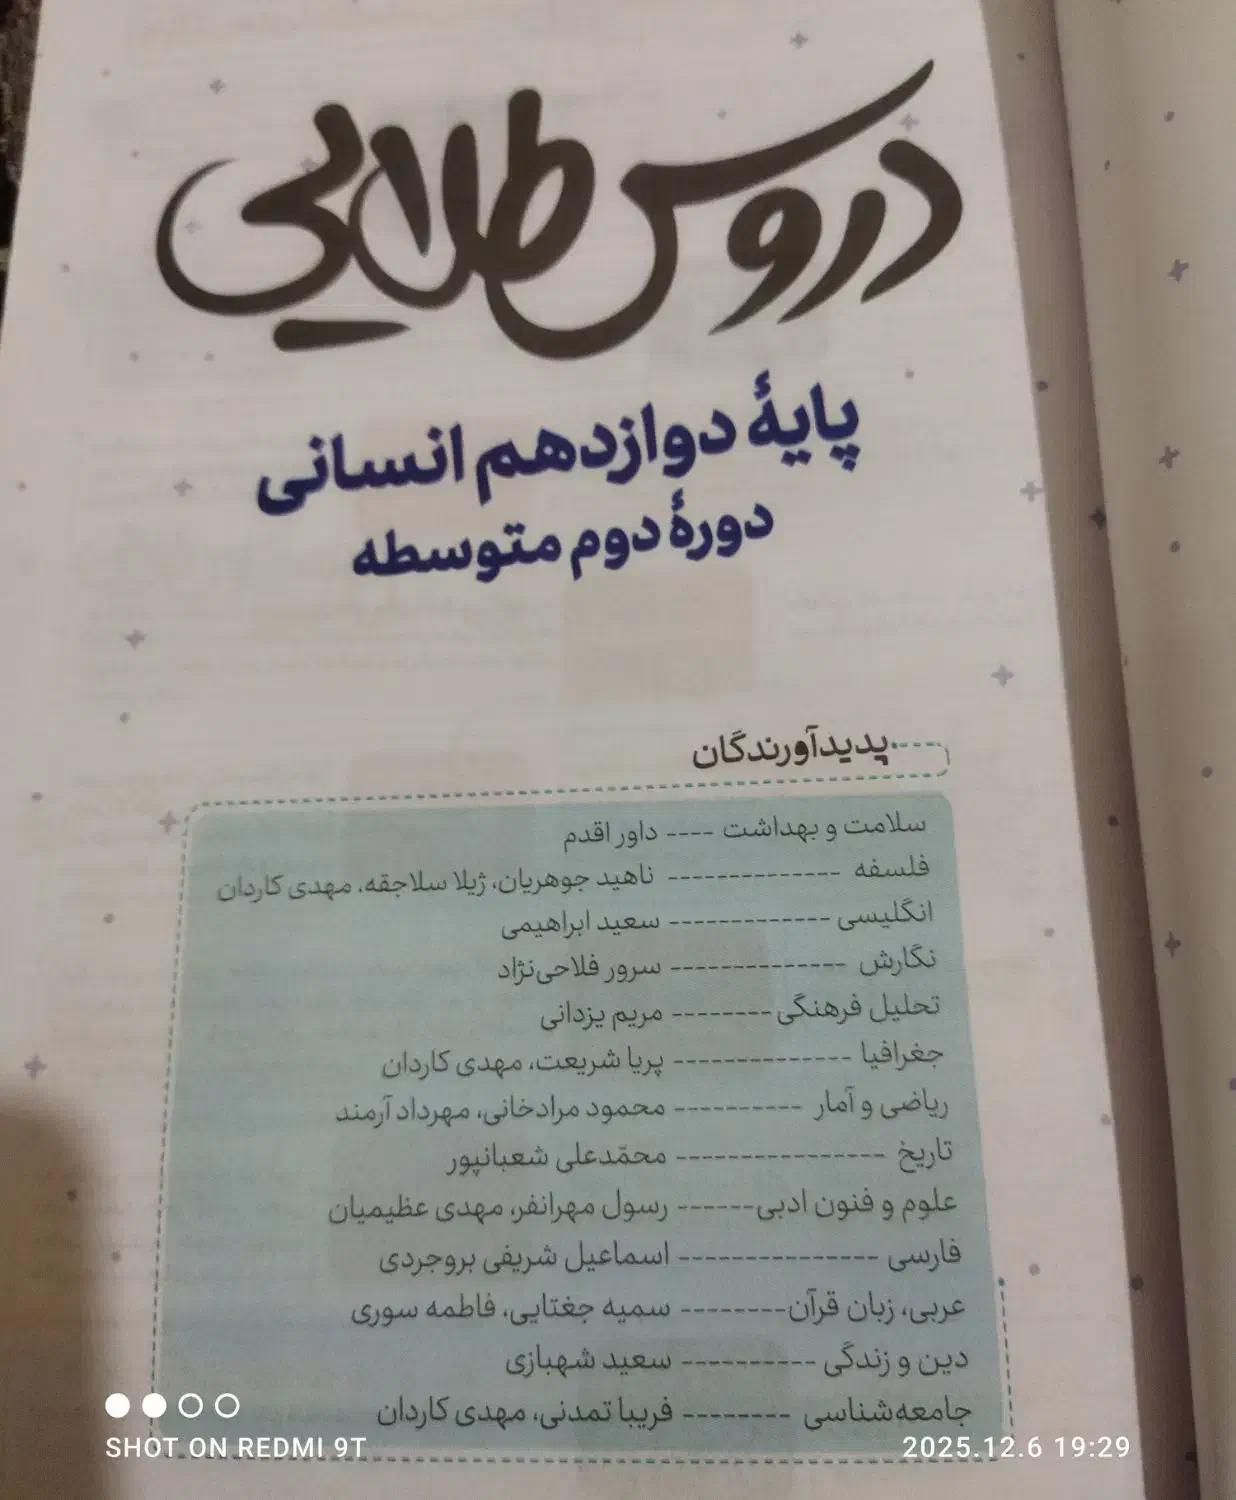 دروس طلایی
پایهٔ دوازدهم انسانی
دورهٔ دوم متوسطه
پدیدآورندگان
سلامت و بهداشت ---- داور اقدم
فلسفه -------------- ناهید جوهریان، ژیلا سلاجقه، مهدی کاردان
انگلیسی ------------- سعید ابراهیمی
نگارش -------------- سرور فلاحی‌نژاد
تحلیل فرهنگی-------- مریم یزدانی
جغرافیا -------------- پریا شریعت، مهدی کاردان
ریاضی و آمار ---------- محمود مرادخانی، مهرداد آرمند
تاریخ ---------------- محمّدعلی شعبانپور
علوم و فنون ادبی------ رسول مهرانفر، مهدی عظیمیان
فارسی --------------- اسماعیل شریفی بروجردی
عربی، زبان قرآن-------- سمیه جغتایی، فاطمه سوری
دین و زندگی ---------- سعید شهبازی
جامعه‌شناسی -------- فریبا تمدنی، مهدی کاردان
SHOT ON REDMI 9T
2025.12.6 19:29